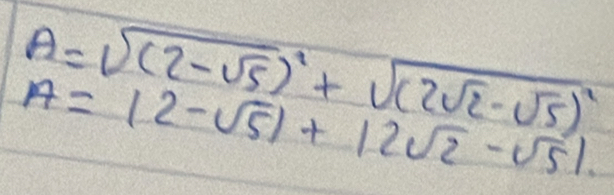 A = √(2 - √5)² + √(2√2 - √5)²
A = |2 - √5| + |2√2 - √5|.